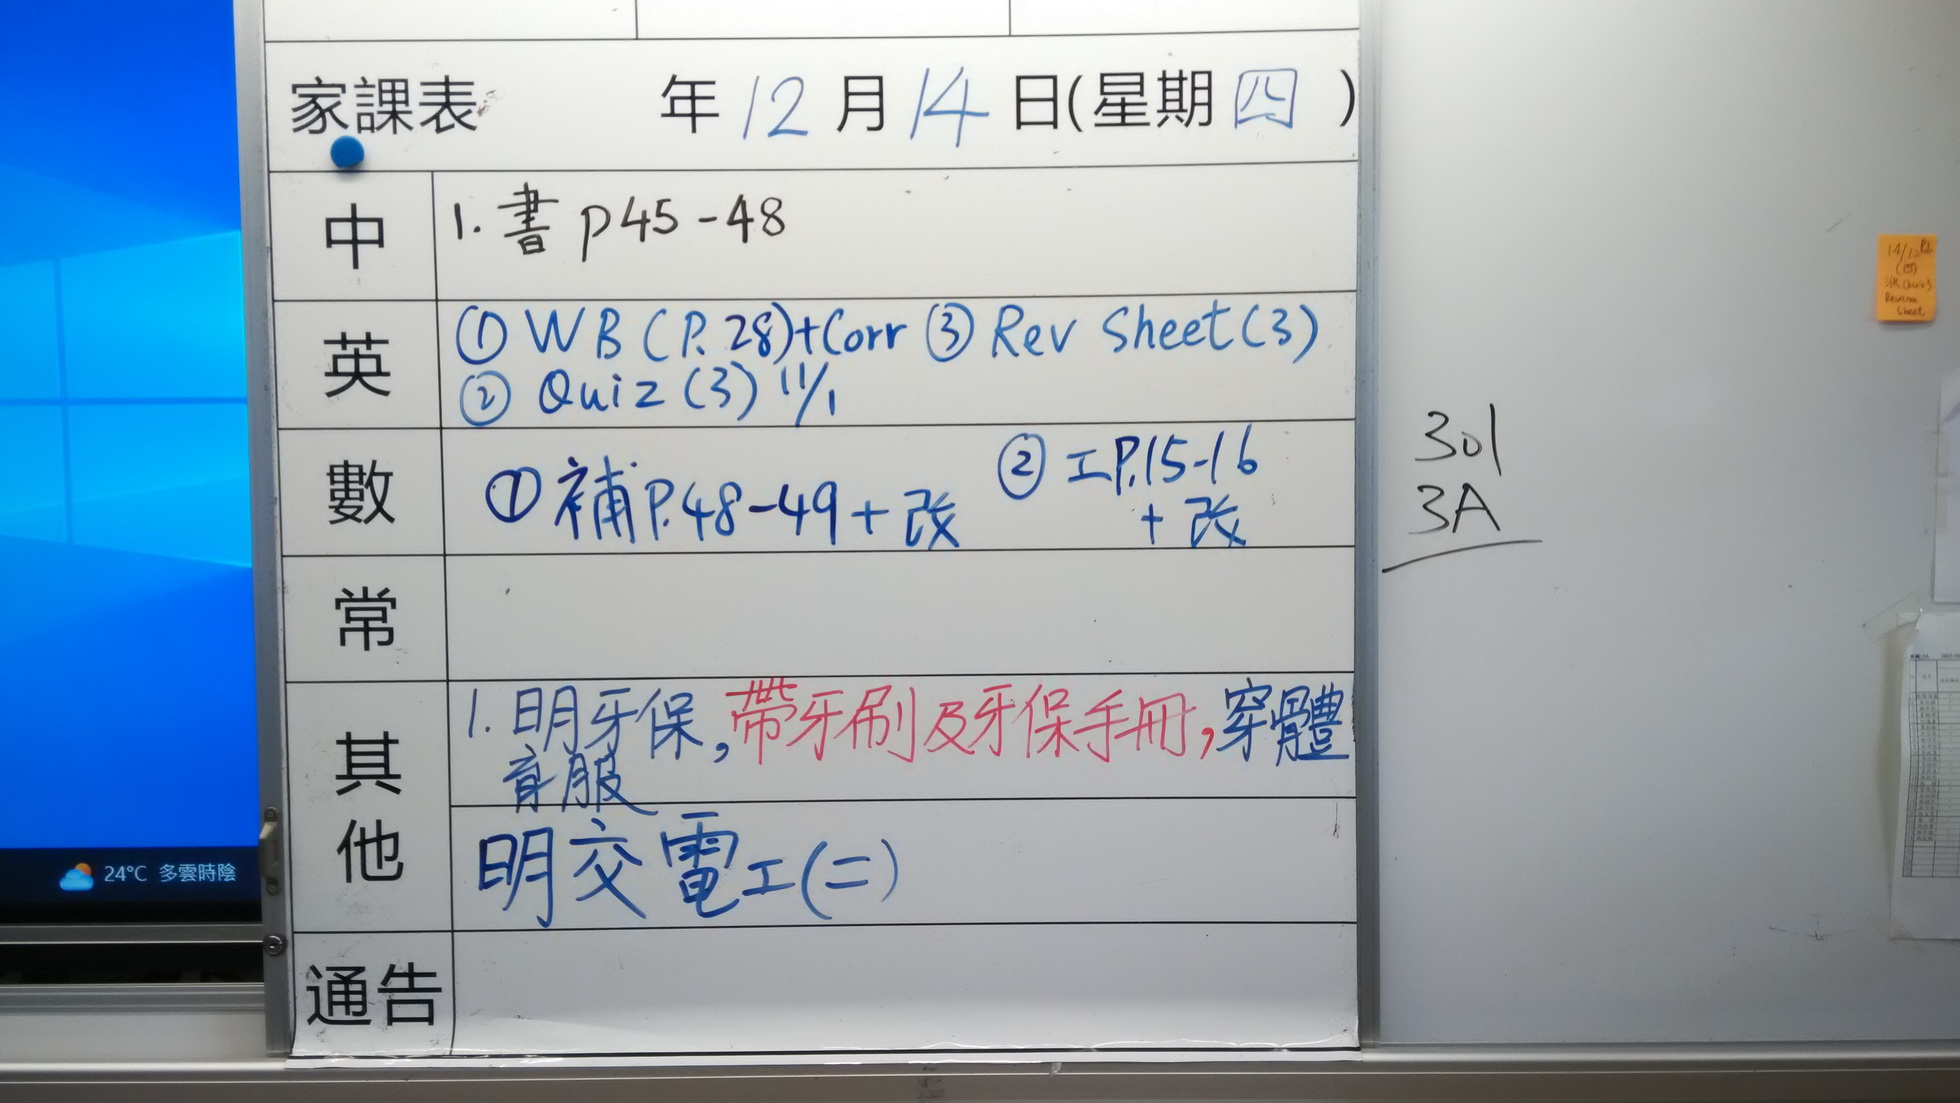 家課表 年 12 月 14 日(星期 四 )
中
1. 書 p45-48
英
① WB (P. 28)+Corr ③ Rev Sheet (3)
② Quiz (3) 11/1
數
① 補 P.48-49 + 改
② 工 P.15-16
+ 改
常
其他
1. 明牙保,帶牙刷及牙保手冊,穿體
育服
明交電工(二)
通告
301
3A
14/12
(四)
Sheet
24°C 多雲時陰